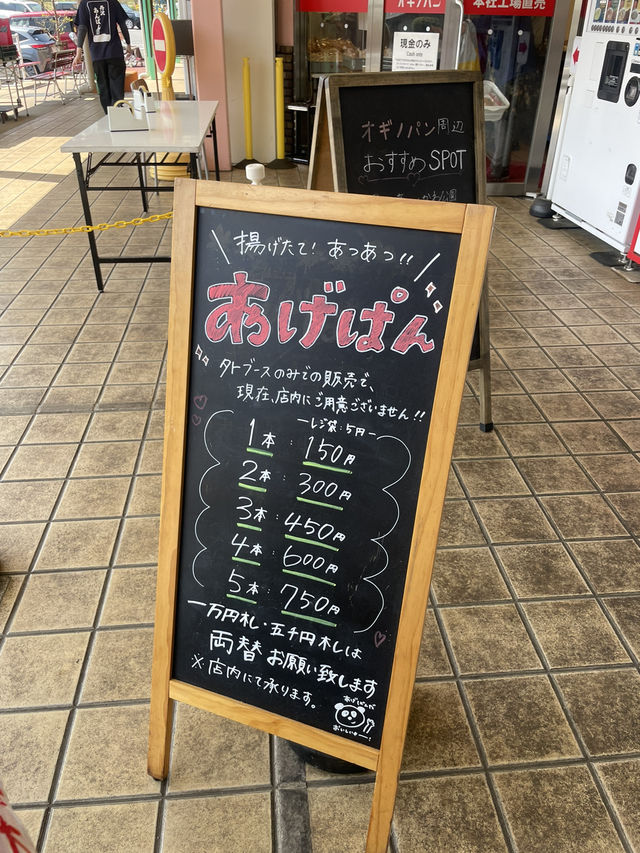 オギノパン
本社工場直売
現金のみ
Cash only
オギノパン周辺
おすすめSPOT
揚げたて! あつあつ!!
あげぱん
外ブースのみでの販売で、
現在、店内にご用意ございません!!
ーレジ袋:5円ー
1本:150円
2本:300円
3本:450円
4本:600円
5本:750円
一万円札・五千円札は
両替お願い致します
※店内にて承ります。
あげぱんだ
おいしいよー!